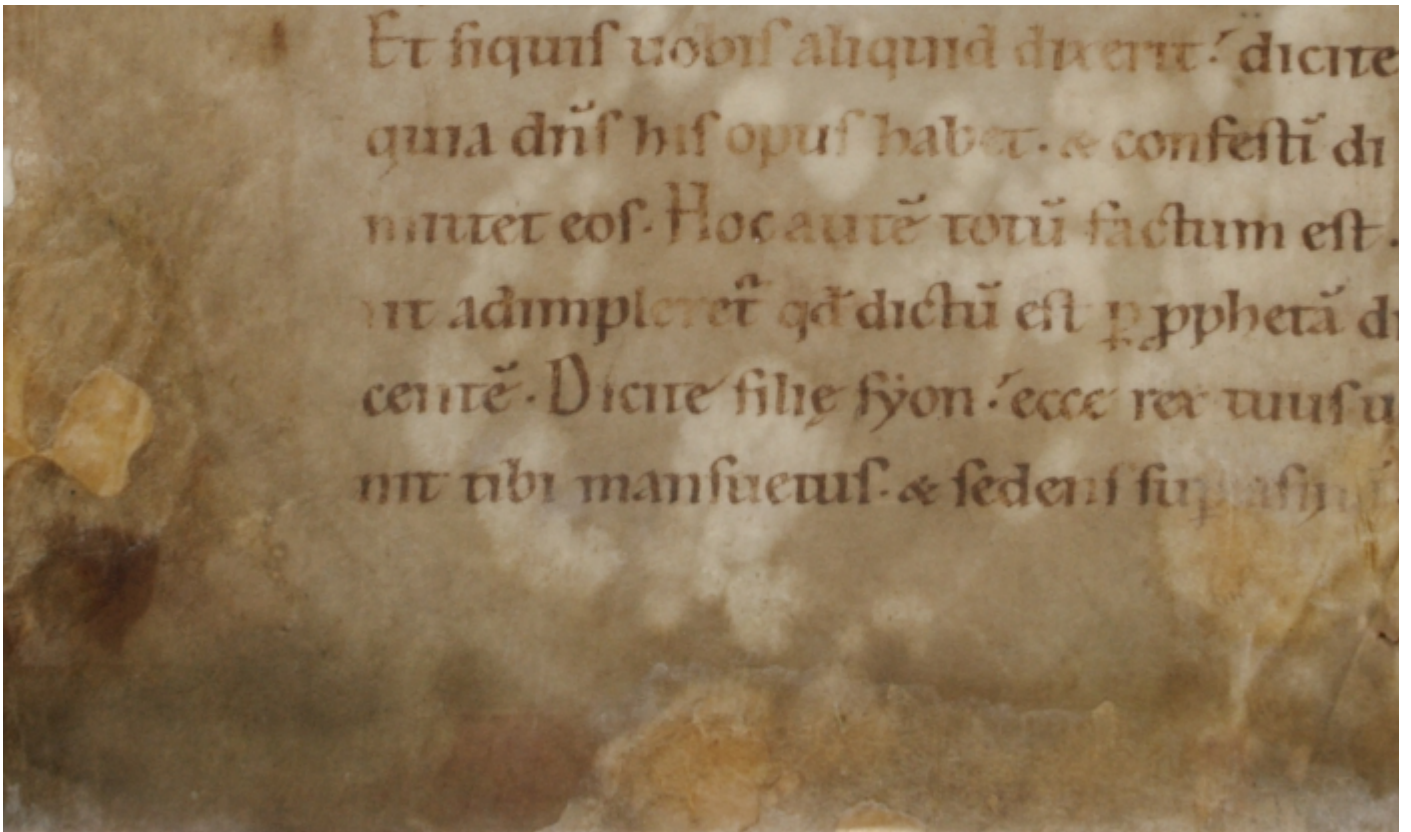 Et siquis uobis aliquid dixerit: dicite
quia dn̄s his opus habet. & confestī di
mittet eos. Hoc autē totū factum est.
ut adimpleret᷑ qd̄ dictū est ꝑ ꝓphetā di
centē. Dicite filię syon: ecce rex tuus ue
nit tibi mansuetus. & sedens suꝑ asinā